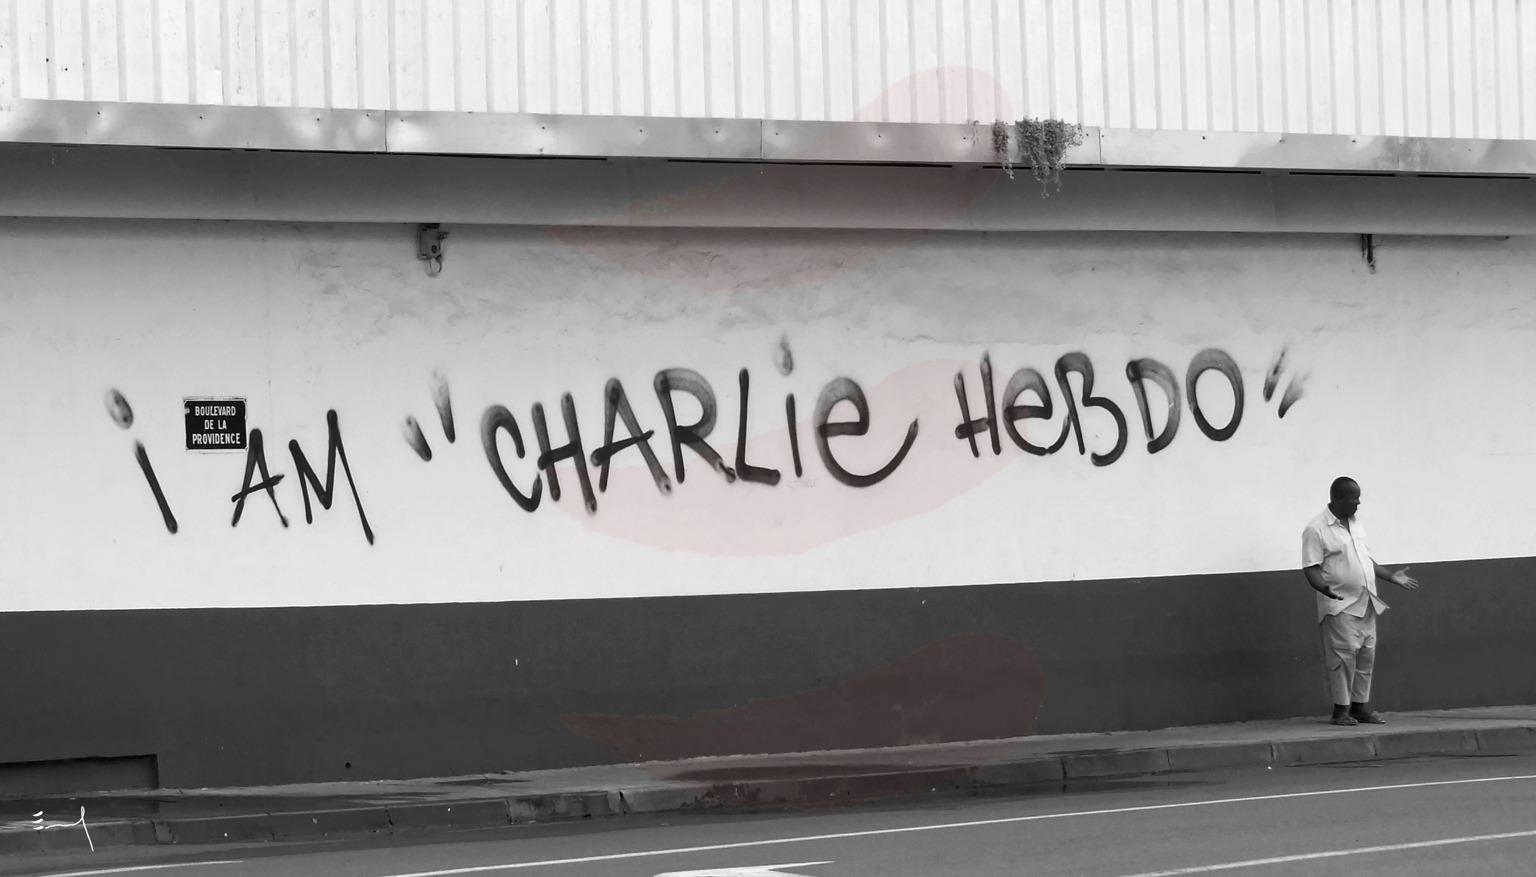 BOULEVARD
DE LA
PROVIDENCE
i AM "CHARLie HeBDO"